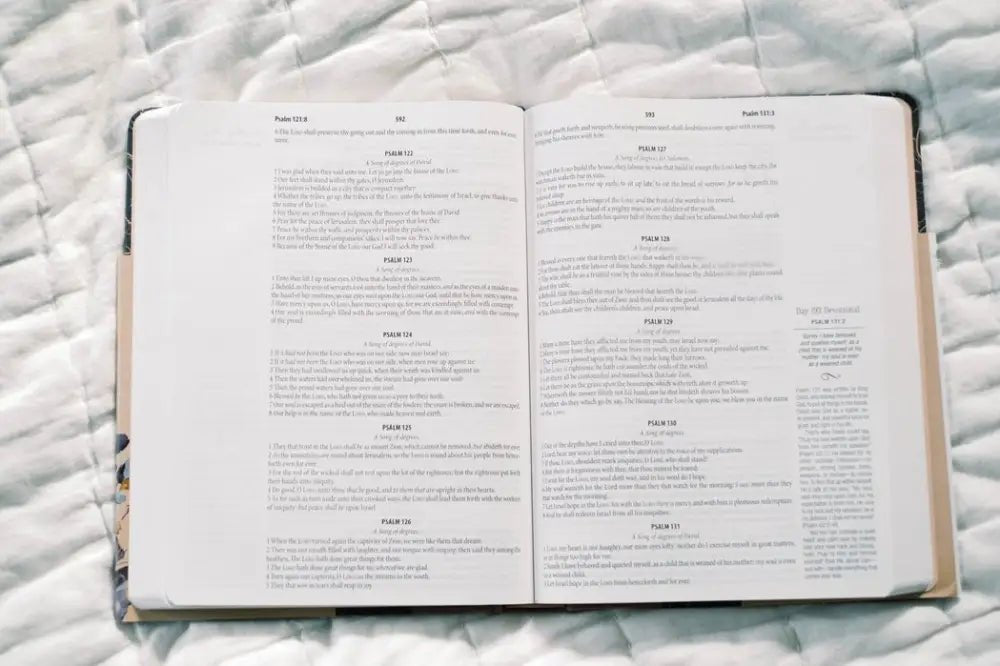 Psalm 121:8
592
8 The LORD shall preserve thy going out and thy coming in from this time forth, and even for ever-
more.
PSALM 122
A Song of degrees of David.
1 I was glad when they said unto me, Let us go into the house of the LORD.
2 Our feet shall stand within thy gates, O Jerusalem.
3 Jerusalem is builded as a city that is compact together:
4 Whither the tribes go up, the tribes of the LORD, unto the testimony of Israel, to give thanks unto
the name of the LORD.
5 For there are set thrones of judgment, the thrones of the house of David.
6 Pray for the peace of Jerusalem: they shall prosper that love thee.
7 Peace be within thy walls, and prosperity within thy palaces.
8 For my brethren and companions' sakes, I will now say, Peace be within thee.
9 Because of the house of the LORD our God I will seek thy good.
PSALM 123
A Song of degrees.
1 Unto thee lift I up mine eyes, O thou that dwellest in the heavens.
2 Behold, as the eyes of servants look unto the hand of their masters, and as the eyes of a maiden unto
the hand of her mistress; so our eyes wait upon the LORD our God, until that he have mercy upon us.
3 Have mercy upon us, O LORD, have mercy upon us: for we are exceedingly filled with contempt.
4 Our soul is exceedingly filled with the scorning of those that are at ease, and with the contempt
of the proud.
PSALM 124
A Song of degrees of David.
1 If it had not been the LORD who was on our side, now may Israel say;
2 If it had not been the LORD who was on our side, when men rose up against us:
3 Then they had swallowed us up quick, when their wrath was kindled against us:
4 Then the waters had overwhelmed us, the stream had gone over our soul:
5 Then the proud waters had gone over our soul.
6 Blessed be the LORD, who hath not given us as a prey to their teeth.
7 Our soul is escaped as a bird out of the snare of the fowlers: the snare is broken, and we are escaped.
8 Our help is in the name of the LORD, who made heaven and earth.
PSALM 125
A Song of degrees.
1 They that trust in the LORD shall be as mount Zion, which cannot be removed, but abideth for ever.
2 As the mountains are round about Jerusalem, so the LORD is round about his people from hence-
forth even for ever.
3 For the rod of the wicked shall not rest upon the lot of the righteous; lest the righteous put forth
their hands unto iniquity.
4 Do good, O LORD, unto those that be good, and to them that are upright in their hearts.
5 As for such as turn aside unto their crooked ways, the LORD shall lead them forth with the workers
of iniquity: but peace shall be upon Israel.
PSALM 126
A Song of degrees.
1 When the LORD turned again the captivity of Zion, we were like them that dream.
2 Then was our mouth filled with laughter, and our tongue with singing: then said they among the
heathen, The LORD hath done great things for them.
3 The LORD hath done great things for us; whereof we are glad.
4 Turn again our captivity, O LORD, as the streams in the south.
5 They that sow in tears shall reap in joy.
593
Psalm 131:3
6 He that goeth forth and weepeth, bearing precious seed, shall doubtless come again with rejoicing,
bringing his sheaves with him.
PSALM 127
A Song of degrees for Solomon.
1 Except the LORD build the house, they labour in vain that build it: except the LORD keep the city, the
watchman waketh but in vain.
2 It is vain for you to rise up early, to sit up late, to eat the bread of sorrows: for so he giveth his
beloved sleep.
3 Lo, children are an heritage of the LORD: and the fruit of the womb is his reward.
4 As arrows are in the hand of a mighty man; so are children of the youth.
5 Happy is the man that hath his quiver full of them: they shall not be ashamed, but they shall speak
with the enemies in the gate.
PSALM 128
A Song of degrees.
1 Blessed is every one that feareth the LORD; that walketh in his ways.
2 For thou shalt eat the labour of thine hands: happy shalt thou be, and
3 Thy wife shall be as a fruitful vine by the sides of thine house: thy children like olive plants round
about thy table.
4 Behold, that thus shall the man be blessed that feareth the LORD.
5 The LORD shall bless thee out of Zion: and thou shalt see the good of Jerusalem all the days of thy life.
6 Yea, thou shalt see thy children's children, and peace upon Israel.
PSALM 129
A Song of degrees.
1 Many a time have they afflicted me from my youth, may Israel now say:
2 Many a time have they afflicted me from my youth: yet they have not prevailed against me.
3 The plowers plowed upon my back: they made long their furrows.
4 The LORD is righteous: he hath cut asunder the cords of the wicked.
5 Let them all be confounded and turned back that hate Zion.
6 Let them be as the grass upon the housetops, which withereth afore it groweth up:
7 Wherewith the mower filleth not his hand; nor he that bindeth sheaves his bosom.
8 Neither do they which go by say, The blessing of the LORD be upon you: we bless you in the name
of the LORD.
PSALM 130
A Song of degrees.
1 Out of the depths have I cried unto thee, O LORD.
2 Lord, hear my voice: let thine ears be attentive to the voice of my supplications.
3 If thou, LORD, shouldest mark iniquities, O Lord, who shall stand?
4 But there is forgiveness with thee, that thou mayest be feared.
5 I wait for the LORD, my soul doth wait, and in his word do I hope.
6 My soul waiteth for the Lord more than they that watch for the morning: I say, more than they
that watch for the morning.
7 Let Israel hope in the LORD: for with the LORD there is mercy, and with him is plenteous redemption.
8 And he shall redeem Israel from all his iniquities.
PSALM 131
A Song of degrees of David.
1 LORD, my heart is not haughty, nor mine eyes lofty: neither do I exercise myself in great matters,
or in things too high for me.
2 Surely I have behaved and quieted myself, as a child that is weaned of his mother: my soul is even
as a weaned child.
3 Let Israel hope in the LORD from henceforth and for ever.
Devotional
PSALM 131:2
Surely I have behaved
and quieted myself, as a
child that is weaned of his
mother: my soul is even
as a weaned child.